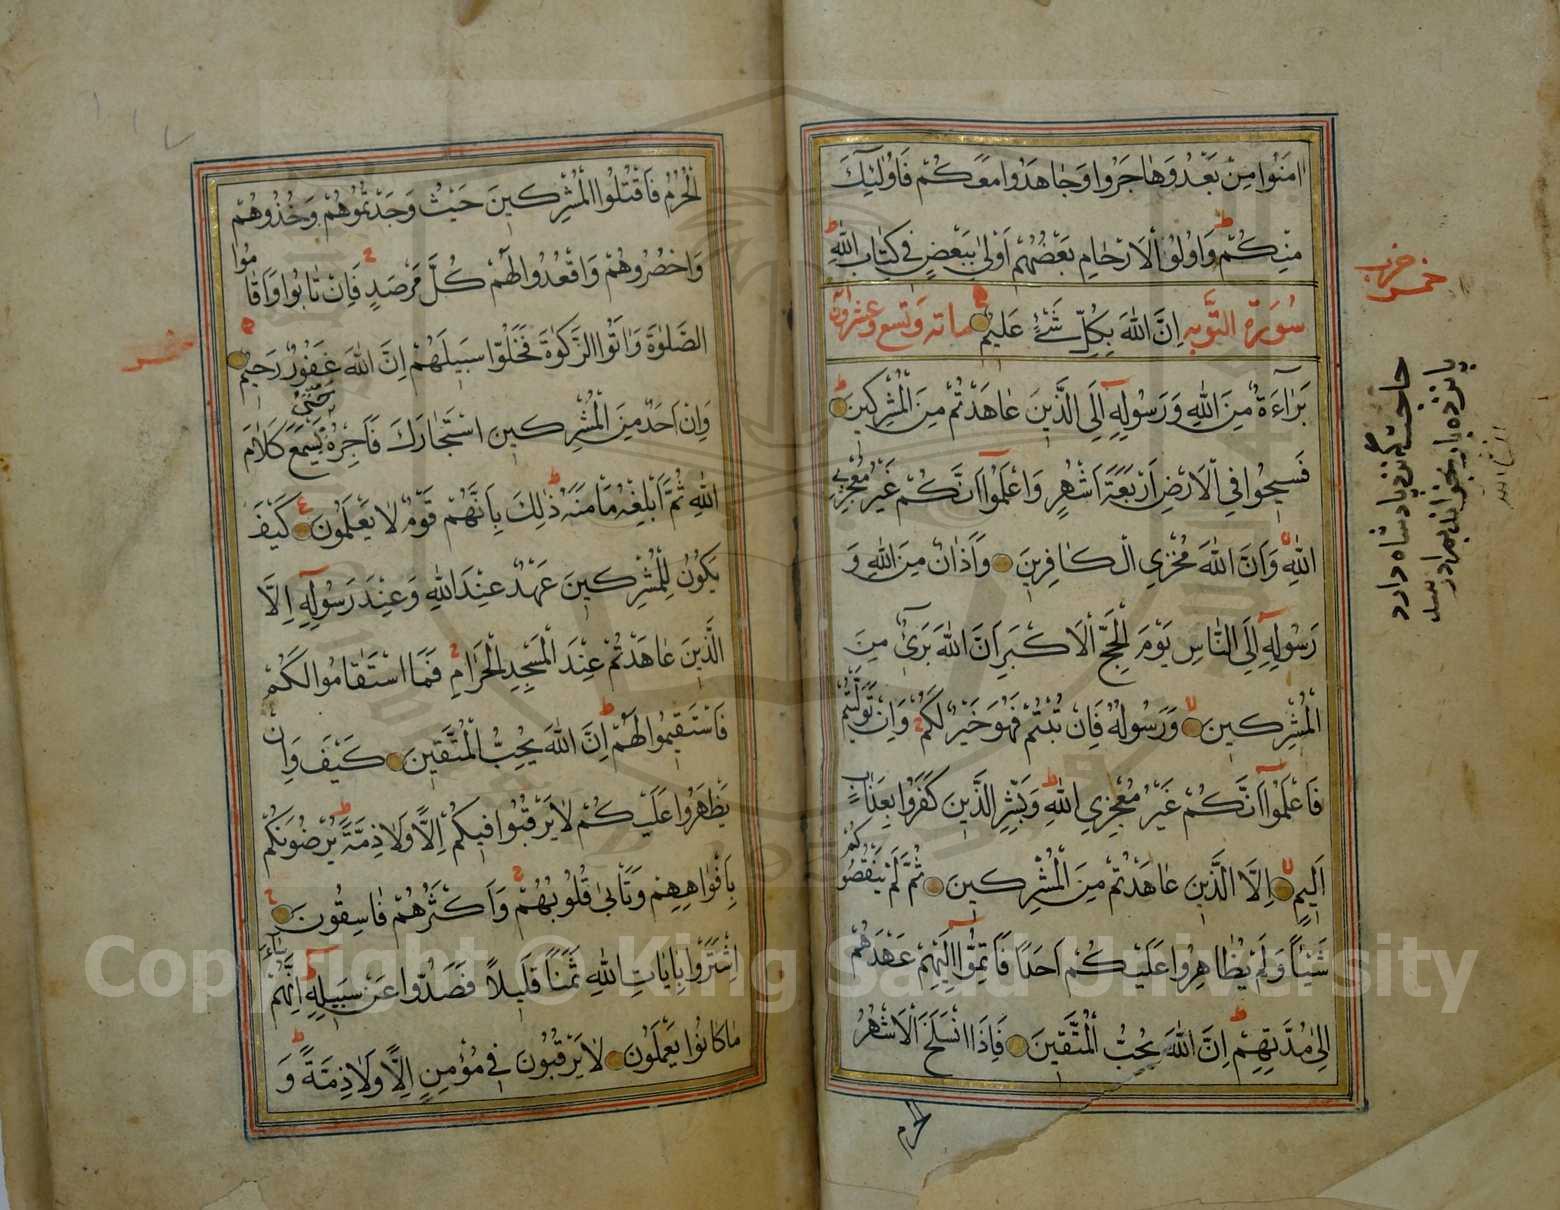 اٰمَنُوا مِنْ بَعْدُ وَهَاجَرُوا وَجَاهَدُوا مَعَكُمْ فَاُولٰئِكَ
مِنْكُمْ وَاُولُوا الْاَرْحَامِ بَعْضُهُمْ اَوْلٰى بِبَعْضٍ فِي كِتَابِ اللّٰهِ
سُورَةُ التَّوْبَه اِنَّ اللّٰهَ بِكُلِّ شَيْءٍ عَلِيمٌ مائة وَتِسع وَعشرون
بَرَاءَةٌ مِنَ اللّٰهِ وَرَسُولِهِ اِلَى الَّذِينَ عَاهَدْتُمْ مِنَ الْمُشْرِكِينَ
فَسِيحُوا فِي الْاَرْضِ اَرْبَعَةَ اَشْهُرٍ وَاعْلَمُوا اَنَّكُمْ غَيْرُ مُعْجِزِي
اللّٰهِ وَاَنَّ اللّٰهَ مُخْزِي الْكَافِرِينَ وَاَذَانٌ مِنَ اللّٰهِ وَ
رَسُولِهِ اِلَى النَّاسِ يَوْمَ الْحَجِّ الْاَكْبَرِ اَنَّ اللّٰهَ بَرِيءٌ مِنَ
الْمُشْرِكِينَ وَرَسُولُهُ فَاِنْ تُبْتُمْ فَهُوَ خَيْرٌ لَكُمْ وَاِنْ تَوَلَّيْتُمْ
فَاعْلَمُوا اَنَّكُمْ غَيْرُ مُعْجِزِي اللّٰهِ وَبَشِّرِ الَّذِينَ كَفَرُوا بِعَذَابٍ
اَلِيمٍ اِلَّا الَّذِينَ عَاهَدْتُمْ مِنَ الْمُشْرِكِينَ ثُمَّ لَمْ يَنْقُصُوكُمْ
شَيْئًا وَلَمْ يُظَاهِرُوا عَلَيْكُمْ اَحَدًا فَاَتِمُّوا اِلَيْهِمْ عَهْدَهُمْ
اِلٰى مُدَّتِهِمْ اِنَّ اللّٰهَ يُحِبُّ الْمُتَّقِينَ فَاِذَا انْسَلَخَ الْاَشْهُرُ
الحرم
خمس حزب
حاجتے گز پادشاه دارد
پانزده بار بخواند بمراد رسد
الْحُرُمُ فَاقْتُلُوا الْمُشْرِكِينَ حَيْثُ وَجَدْتُمُوهُمْ وَخُذُوهُمْ
وَاحْصُرُوهُمْ وَاقْعُدُوا لَهُمْ كُلَّ مَرْصَدٍ فَاِنْ تَابُوا وَاَقَامُوا
الصَّلٰوةَ وَاٰتَوُا الزَّكٰوةَ فَخَلُّوا سَبِيلَهُمْ اِنَّ اللّٰهَ غَفُورٌ رَحِيمٌ
وَاِنْ اَحَدٌ مِنَ الْمُشْرِكِينَ اسْتَجَارَكَ فَاَجِرْهُ حَتّٰى يَسْمَعَ كَلَامَ
اللّٰهِ ثُمَّ اَبْلِغْهُ مَأْمَنَهُ ذٰلِكَ بِاَنَّهُمْ قَوْمٌ لَا يَعْلَمُونَ كَيْفَ
يَكُونُ لِلْمُشْرِكِينَ عَهْدٌ عِنْدَ اللّٰهِ وَعِنْدَ رَسُولِهِ اِلَّا
الَّذِينَ عَاهَدْتُمْ عِنْدَ الْمَسْجِدِ الْحَرَامِ فَمَا اسْتَقَامُوا لَكُمْ
فَاسْتَقِيمُوا لَهُمْ اِنَّ اللّٰهَ يُحِبُّ الْمُتَّقِينَ كَيْفَ وَاِنْ
يَظْهَرُوا عَلَيْكُمْ لَا يَرْقُبُوا فِيكُمْ اِلًّا وَلَا ذِمَّةً يُرْضُونَكُمْ
بِاَفْوَاهِهِمْ وَتَأْبٰى قُلُوبُهُمْ وَاَكْثَرُهُمْ فَاسِقُونَ
اشْتَرَوْا بِاٰيَاتِ اللّٰهِ ثَمَنًا قَلِيلًا فَصَدُّوا عَنْ سَبِيلِهِ اِنَّهُمْ سَاءَ
مَا كَانُوا يَعْمَلُونَ لَا يَرْقُبُونَ فِي مُؤْمِنٍ اِلًّا وَلَا ذِمَّةً وَ
خمس
Copyright © King Saud University
1957